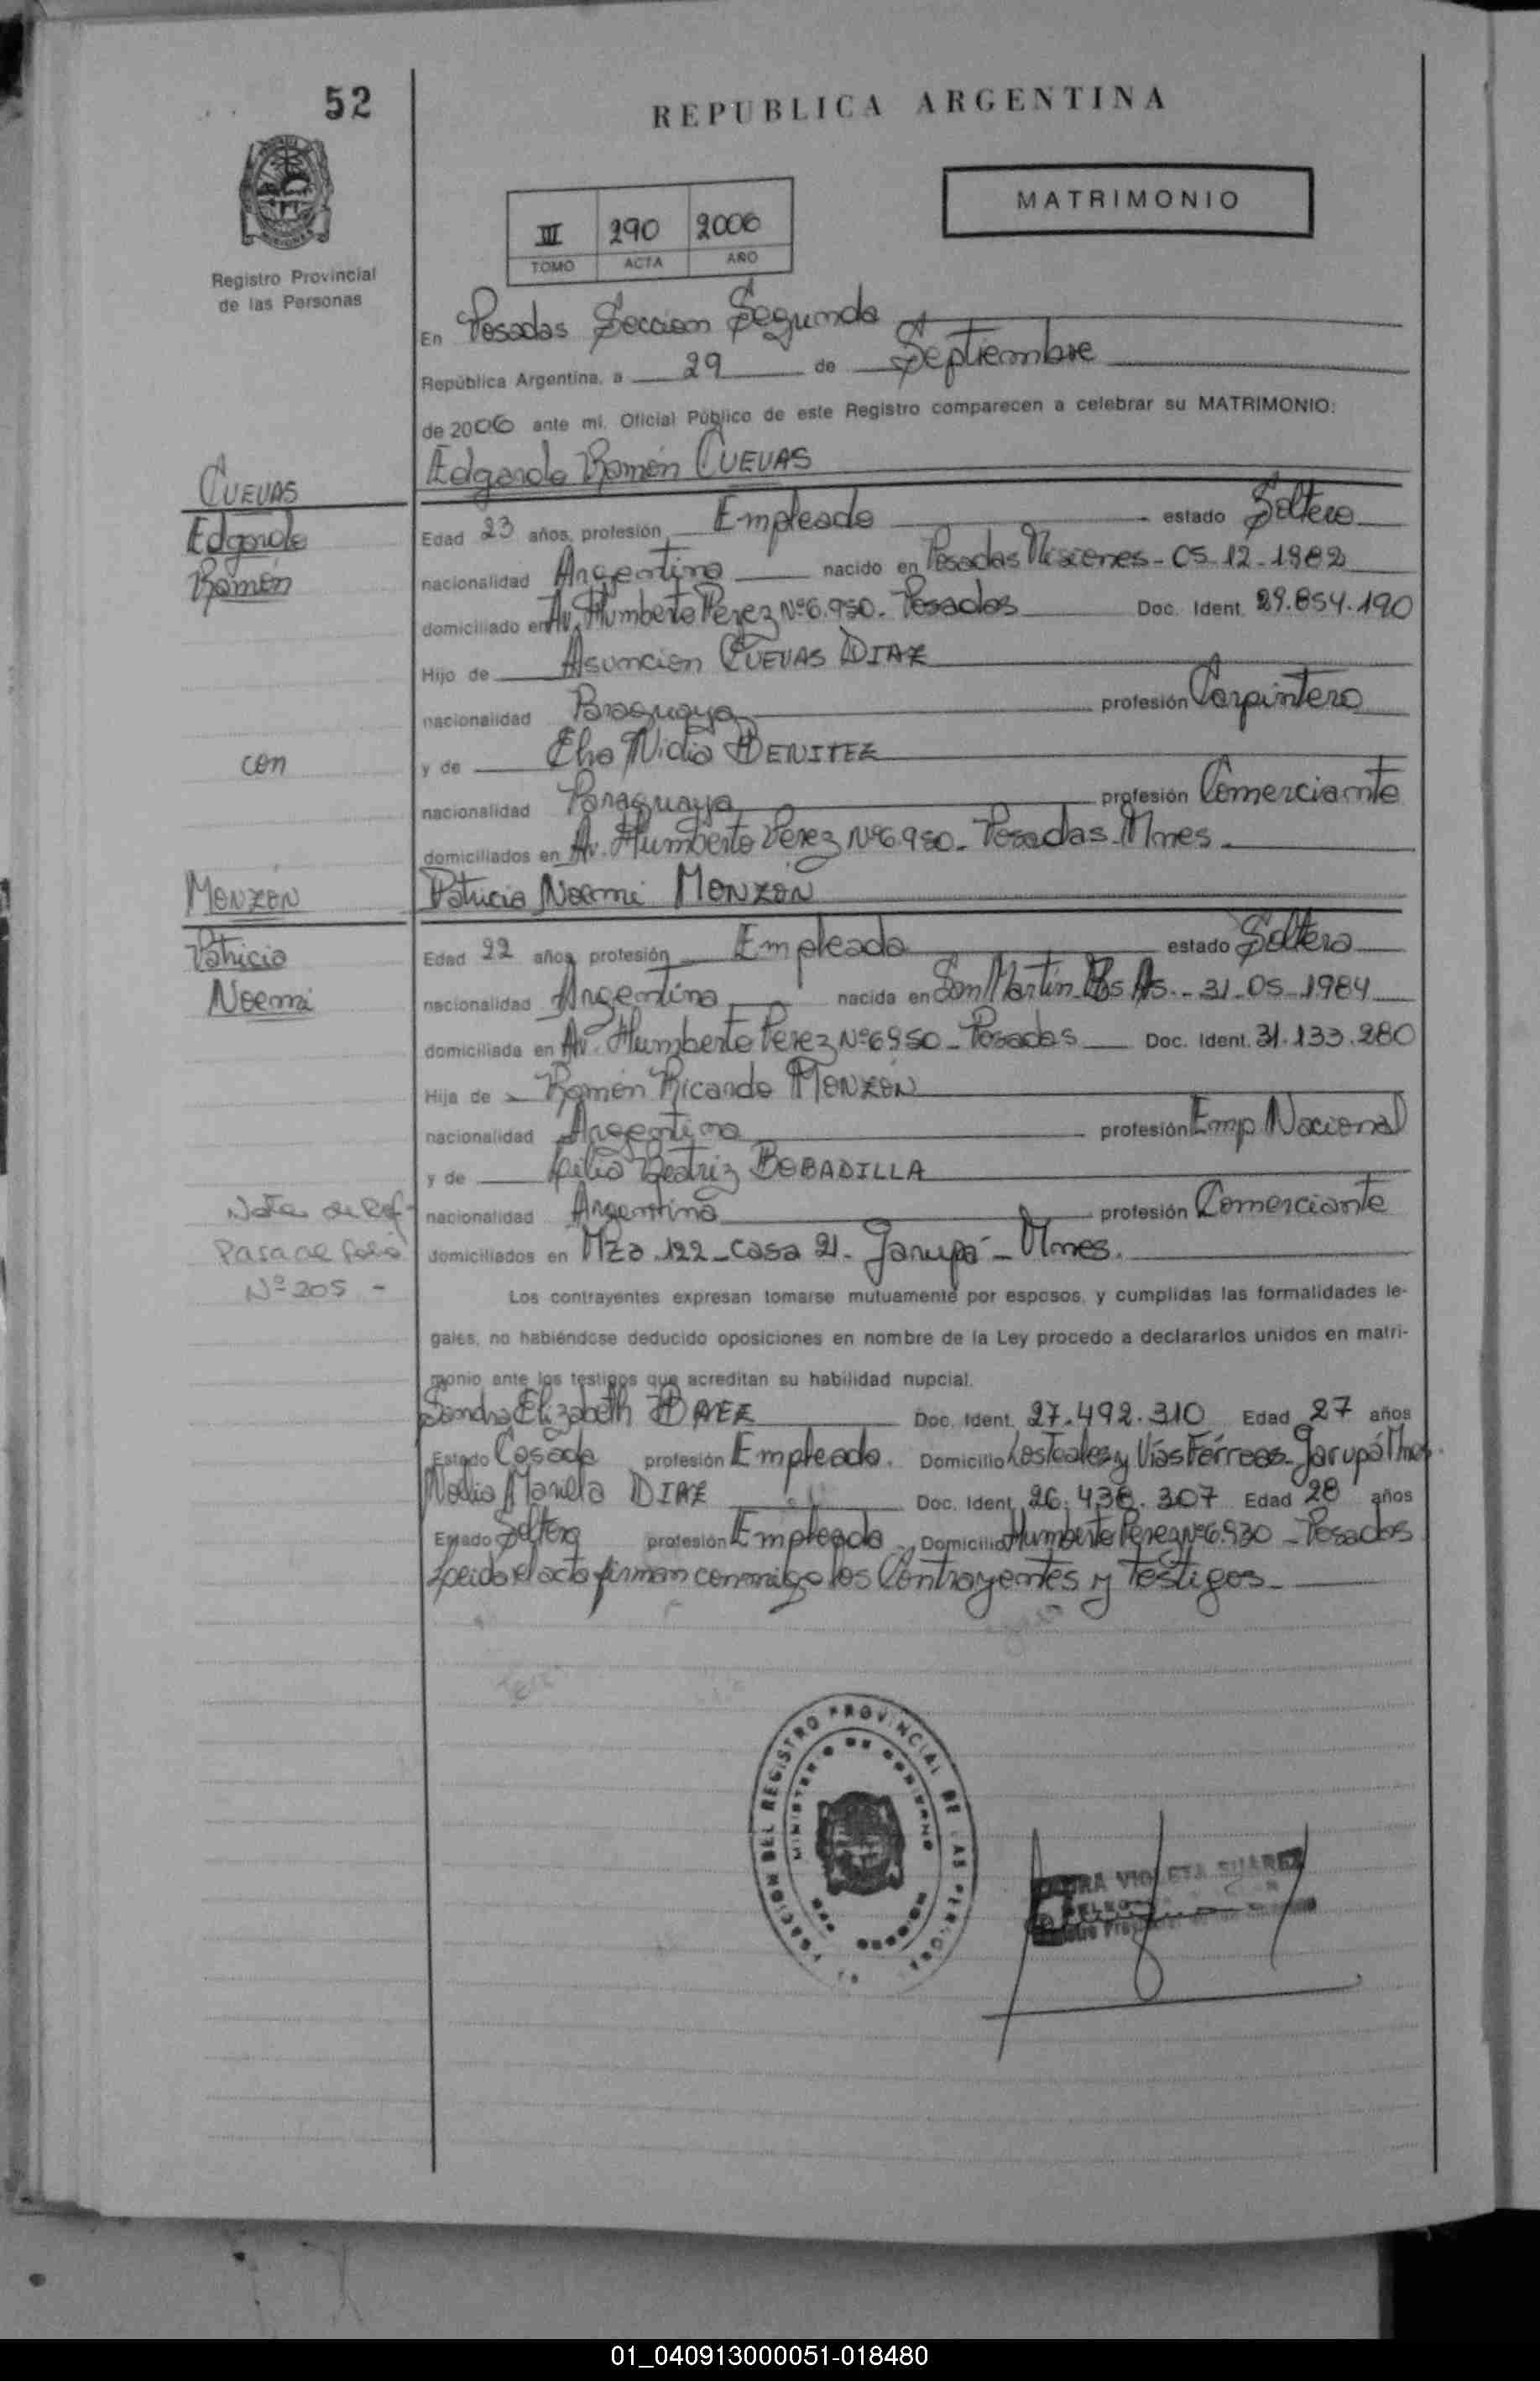 52
REPUBLICA ARGENTINA
MATRIMONIO
III 290 2006
TOMO ACTA AÑO
Registro Provincial
de las Personas
En Posadas Seccion Segunda
República Argentina, a 29 de Septiembre
de 2006 ante mí, Oficial Público de este Registro comparecen a celebrar su MATRIMONIO:
Edgardo Ramón CUEVAS
CUEVAS
Edgardo
Ramón
Edad 23 años, profesión Empleado estado Soltero
nacionalidad Argentina nacido en Posadas Misiones - 05-12-1982
domiciliado en Av. Humberto Perez Nº 6.950. Posadas Doc. Ident. 29.854.190
Hijo de Asuncion CUEVAS DIAZ
nacionalidad Paraguaya profesión Carpintero
con
y de Elva Nidia BENITEZ
nacionalidad Paraguaya profesión Comerciante
domiciliados en Av. Humberto Perez Nº 6.950. Posadas-Mnes.
MONZON
Patricia Noemi MONZON
Patricia
Noemi
Edad 22 años, profesión Empleada estado Soltera
nacionalidad Argentina nacida en San Martin Bs As. - 31-05-1984
domiciliada en Av. Humberto Perez Nº 6950 - Posadas Doc. Ident. 31.133.280
Hija de Ramón Ricardo MONZON
nacionalidad Argentina profesión Emp Nacional
y de Lilia Beatriz BOBADILLA
nacionalidad Argentina profesión Comerciante
domiciliados en Mza. 122 - casa 21 - Garupá - Mnes.
Nota de Ref.
Pasa al folio
Nº 205 -
Los contrayentes expresan tomarse mutuamente por esposos, y cumplidas las formalidades le-
gales, no habiéndose deducido oposiciones en nombre de la Ley procedo a declararlos unidos en matri-
monio ante los testigos que acreditan su habilidad nupcial.
Sandra Elizabeth Doc. Ident. 27.492.310 Edad 27 años
Estado Casada profesión Empleada. Domicilio Los Teales y Vías Férreas - Garupá Mnes.
DIAZ Doc. Ident. 26.438.307 Edad 28 años
Estado Soltera profesión Empleada Domicilio Humberto Perez Nº 6.930 - Posados
Leida el acta firman conmigo los Contrayentes y Testigos -
REGISTRO PROVINCIAL DE LAS PERSONAS
MINISTERIO DE GOBIERNO
VIOLETA SUAREZ
01_040913000051-018480